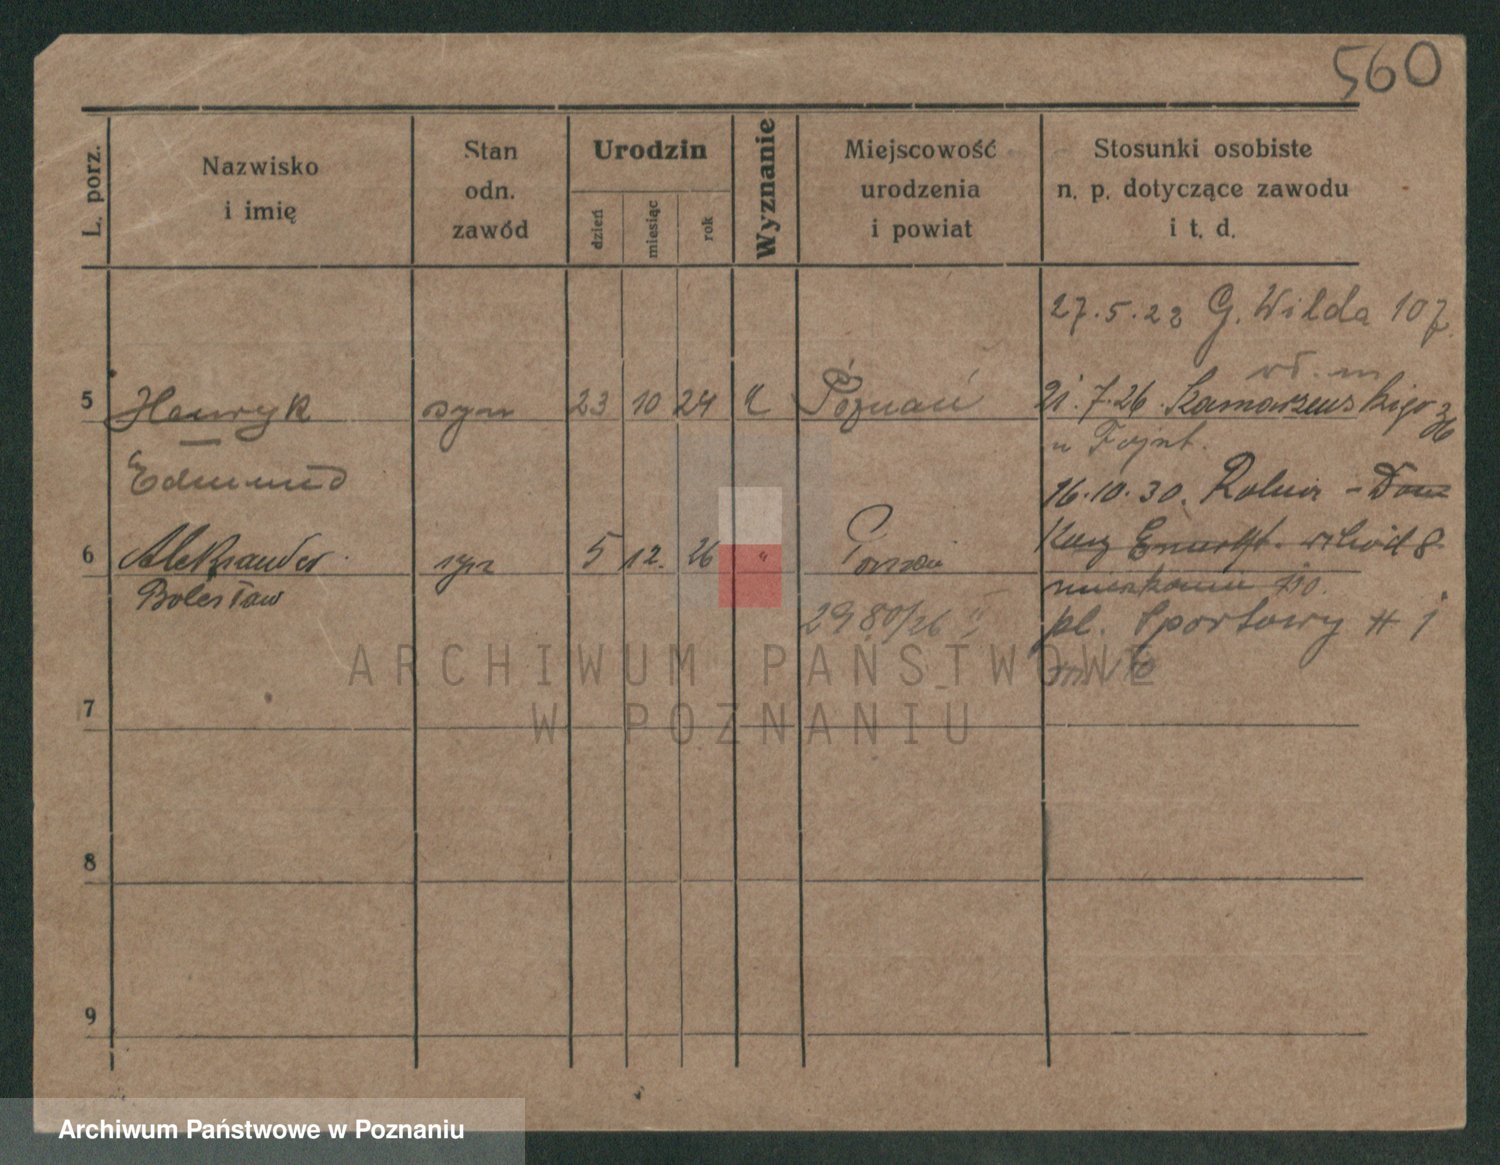 560
L. porz.
Nazwisko
i imię
Stan
odn.
zawód
Urodzin
dzień
miesiąc
rok
Wyznanie
Miejscowość
urodzenia
i powiat
Stosunki osobiste
n. p. dotyczące zawodu
i t. d.
27.5.23 G. Wilda 107
5 Henryk syn 23 10 24 Poznań 21.7.26
Edmund
16.10.30.
6 Aleksander syn 5 12. 26 "
Bolesław
2980/26 II
pl. Sportowy # 1
ARCHIWUM PAŃSTWOWE
W POZNANIU
7
8
9
Archiwum Państwowe w Poznaniu